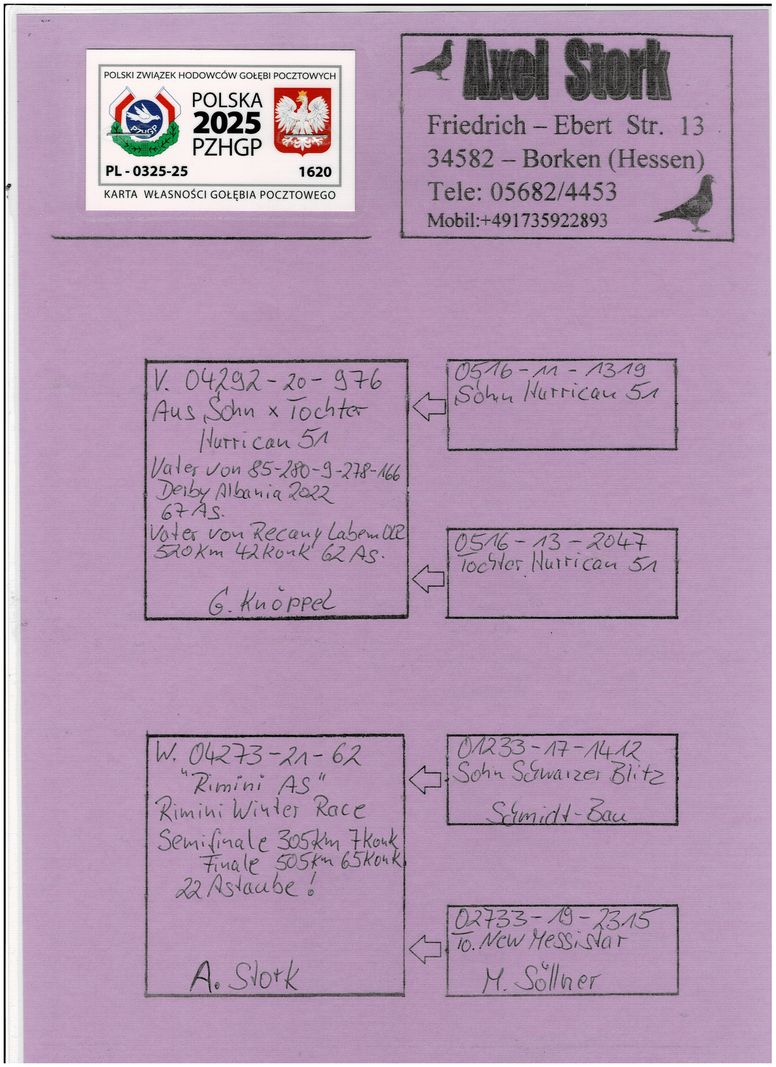 POLSKI ZWIĄZEK HODOWCÓW GOŁĘBI POCZTOWYCH
POLSKA
2025
PZHGP
PZHGP
PL - 0325-25 1620
KARTA WŁASNOŚCI GOŁĘBIA POCZTOWEGO
Axel Stork
Friedrich – Ebert Str. 13
34582 – Borken (Hessen)
Tele: 05682/4453
Mobil:+491735922893
V. 04292-20-976
Aus Sohn x Tochter
Hurrican 51
Vater von 85-280-9-278-166
Derby Albania 2022
67 As.
Vater von Recany Labem
520km 42konk 62 As.
G. Knöppel
0516-11-1319
Sohn Hurrican 51
0516-13-2047
Tochter Hurrican 51
W. 04273-21-62
"Rimini AS"
Rimini Winter Race
Semifinale 305km 7konk
Finale 505km 65konk
22 Astaube!
A. Stork
01233-17-1412
Sohn Schwarzer Blitz
Schmidt-Bau
02733-19-2315
To. New Messistar
M. Söllner